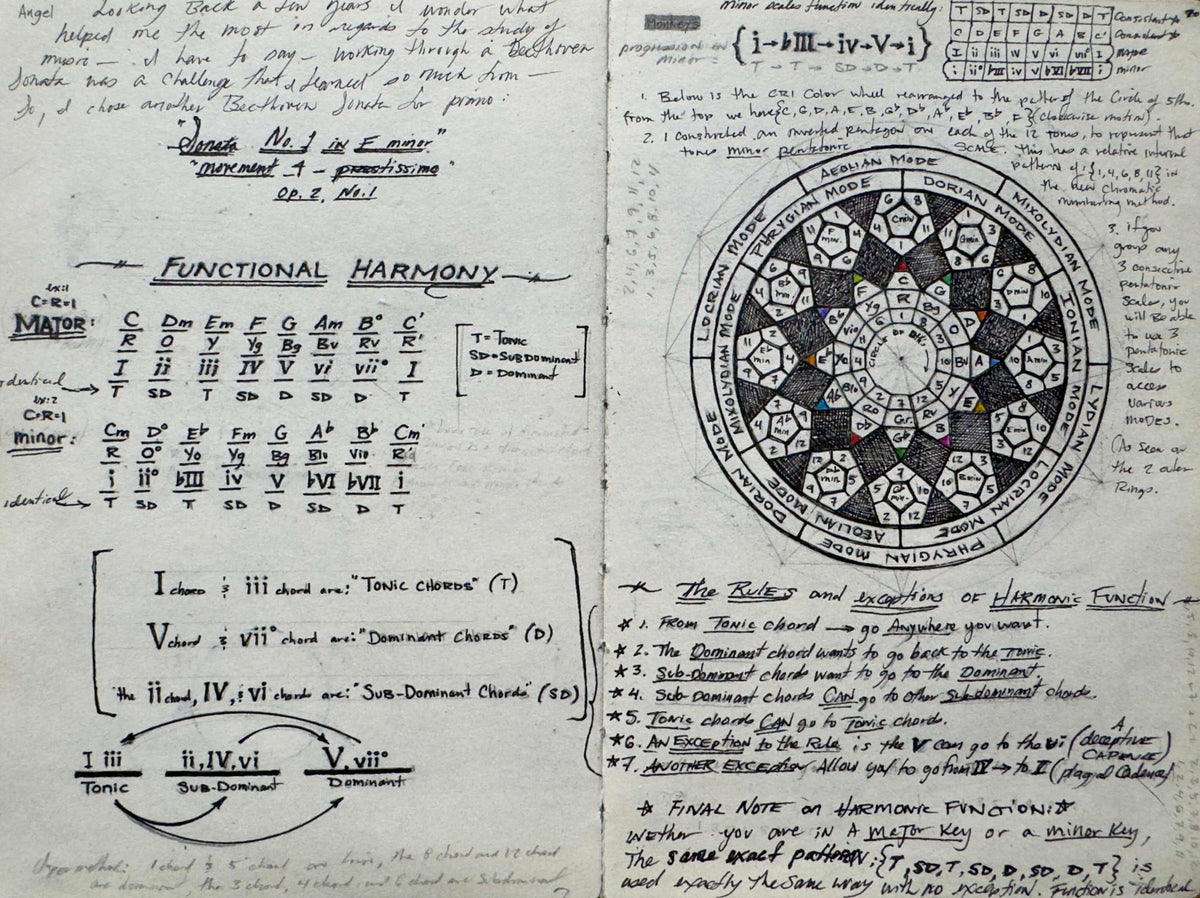 Angel Looking Back a few years I wonder what
helped me the most in regards to the study of
music — I have to say — working through a Beethoven
Sonata was a challenge that I learned so much from —
So, I chose another Beethoven Sonata for piano:
"Sonata No. 1 in F minor"
"movement 4 — prestissimo"
Op. 2, No. 1
FUNCTIONAL HARMONY
ex:1
C=R=1
MAJOR:
C Dm Em F G Am B° C'
R O Y Yg Bg Bv Rv R'
I ii iii IV V vi vii° I
identical → T SD T SD D SD D T
ex:2
C=R=1
minor:
Cm D° E♭ Fm G A♭ B♭ Cm'
R O° Yo Yg Bg Blu Vio R'
i ii° ♭III iv V ♭VI ♭VII i
identical → T SD T SD D SD D T
T = Tonic
SD = SubDominant
D = Dominant
I chord & iii chord are: "TONIC CHORDS" (T)
V chord & vii° chord are: "Dominant Chords" (D)
the ii chord, IV, & vi chords are: "SUB-Dominant Chords" (SD)
I iii ii, IV, vi V, vii°
Tonic SUB-Dominant Dominant
1 chord & 5 chord the 8 chord and 12 chord
are dominant, the 3 chord, 4 chord and 6 chord are subdominant
minor scales function identically:
Monkeys
progression in
minor:
{i→♭III→iv→V→i}
T → T → SD → D → T
T SD T SD D SD D T Consistant
C D E F G A B C' Consistant
I ii iii IV V vi vii° I MAJOR
i ii° ♭III iv V ♭VI ♭VII i minor
1. Below is the CR1 Color wheel rearranged to the pattern of the Circle of 5ths.
From the top we have {C, G, D, A, E, B, G♭, D♭, A♭, E♭, B♭, F} (clockwise motion).
2. I constructed an inverted pentagon on each of the 12 tones, to represent that
tones minor pentatonic SCALE. This has a relative interval
pattern of: {1, 4, 6, 8, 11} in
the new chromatic
numbering method.
3. if you
group any
3 consecutive
pentatonic
Scales, you
will be able
to use 3
pentatonic
Scales to
access
various
MODES.
(As seen on
the 2 outer
Rings.
AEOLIAN MODE
MIXOLYDIAN MODE
IONIAN MODE
LYDIAN MODE
LOCRIAN MODE
PHRYGIAN MODE
AEOLIAN MODE
DORIAN MODE
MIXOLYDIAN MODE
LOCRIAN MODE
PHRYGIAN MODE
DORIAN MODE
C min
G min
D min
A min
E min
B min
G♭ min
D♭ min
A♭ min
E♭ min
B♭ min
F min
C G D A E B G♭ D♭ A♭ E♭ B♭ F
R Bg O Bv Y Rv Gr. RO Blu Yo Vio Yg
CIRCLE OF 5ths.
The Rules and exceptions OF HARMONIC FUNCTION
★ 1. FROM TONIC chord → go Anywhere you want.
★ 2. The Dominant chord wants to go back to the Tonic.
★ 3. Sub-Dominant chords want to go to the Dominant.
★ 4. Sub-Dominant chords CAN go to other Subdominant chords.
★ 5. Tonic chords CAN go to Tonic chords.
★ 6. AN EXCEPTION to the Rule is the V can go to the vi (A deceptive CADENCE)
★ 7. ANOTHER EXCEPTION Allow you to go from IV → to I (plagal Cadence)
☆ FINAL NOTE on HARMONIC FUNCTION: ☆
Wether you are in A Major Key or a minor Key,
The same exact pattern: {T, SD, T, SD, D, SD, D, T} is
used exactly the same way with no exception. Function is identical